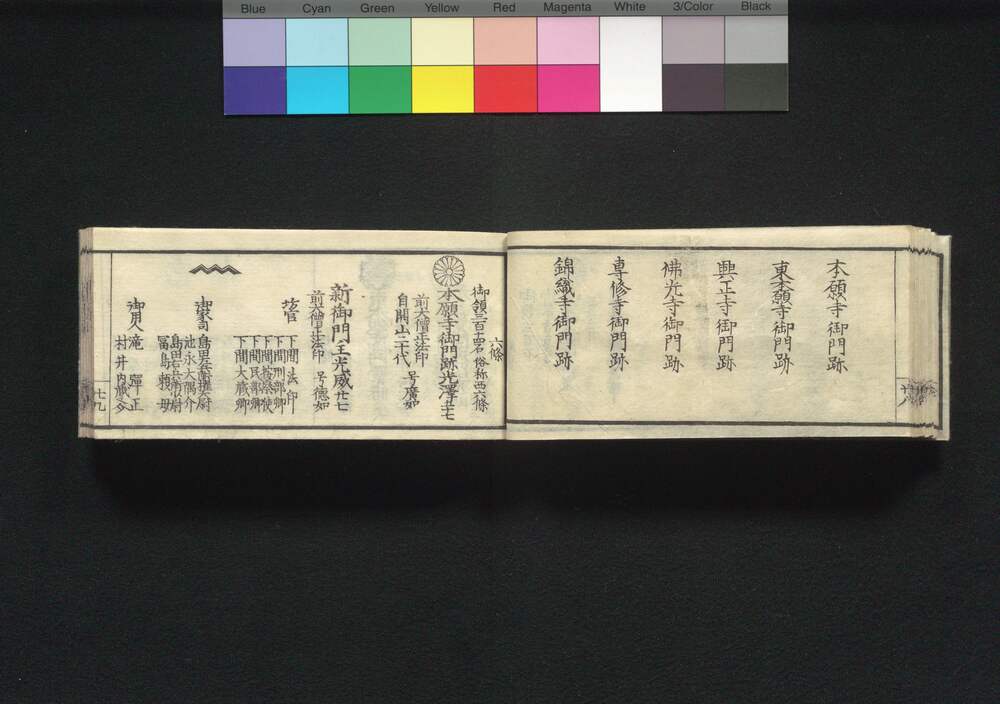 Blue Cyan Green Yellow Red Magenta White 3/Color Black
本願寺御門跡
東本願寺御門跡
興正寺御門跡
佛光寺御門跡
専修寺御門跡
錦織寺御門跡
六條
御領三百十四石俗称西六條
本願寺御門跡光澤五十七
前大僧正法印
自開山二十代 号廣如
新御門主光威廿七
前大僧正法印 号徳如
下間法印
下間刑部卿
下間民部卿
下間大蔵卿
御家司
池永大隅介
冨島頼母
御用人
村井内蔵允
七九